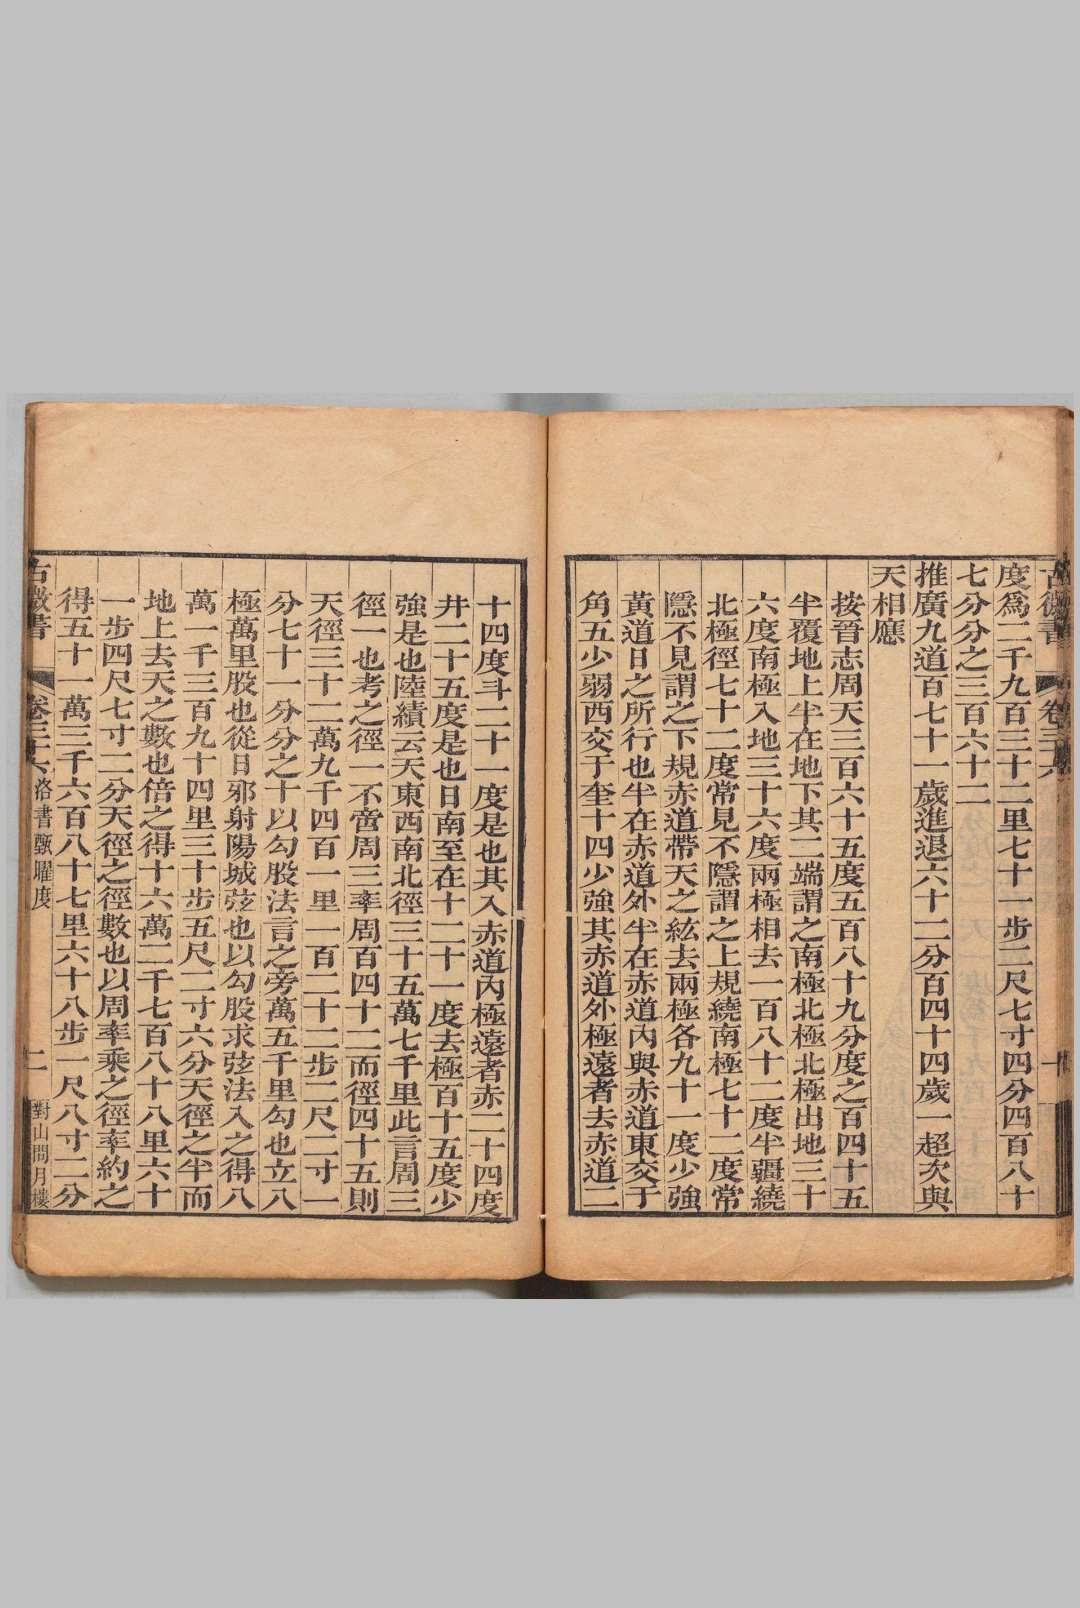 度爲二千九百三十二里七十一步二尺七寸四分四百八十
七分分之三百六十二
推廣九道百七十一歲進退六十二分百四十四歲一超次與
天相應
按晉志周天三百六十五度五百八十九分度之百四十五
半覆地上半在地下其二端謂之南極北極北極出地三十
六度南極入地三十六度兩極相去一百八十二度半疆繞
北極徑七十二度常見不隱謂之上規繞南極七十二度常
隱不見謂之下規赤道帶天之紘去兩極各九十一度少強
黃道日之所行也半在赤道外半在赤道內與赤道東交于
角五少弱西交于奎十四少強其赤道外極遠者去赤道二
十四度斗二十一度是也其入赤道內極遠者赤二十四度
井二十五度是也日南至在十二十一度去極百十五度少
強是也陸績云天東西南北徑三十五萬七千里此言周三
徑一也考之徑一不啻周三率周百四十二而徑四十五則
天徑三十二萬九千四百一里一百二十二步二尺二寸一
分七十一分分之十以勾股法言之旁萬五千里勾也立八
極萬里股也從日邪射陽城弦也以勾股求弦法入之得八
萬一千三百九十四里三十步五尺二寸六分天徑之半而
地上去天之數也倍之得十六萬二千七百八十八里六十
一步四尺七寸二分天徑之徑數也以周率乘之徑率約之
得五十一萬三千六百八十七里六十八步一尺八寸二分
古微書 卷三十六 洛書甄曜度 二 對山問月樓